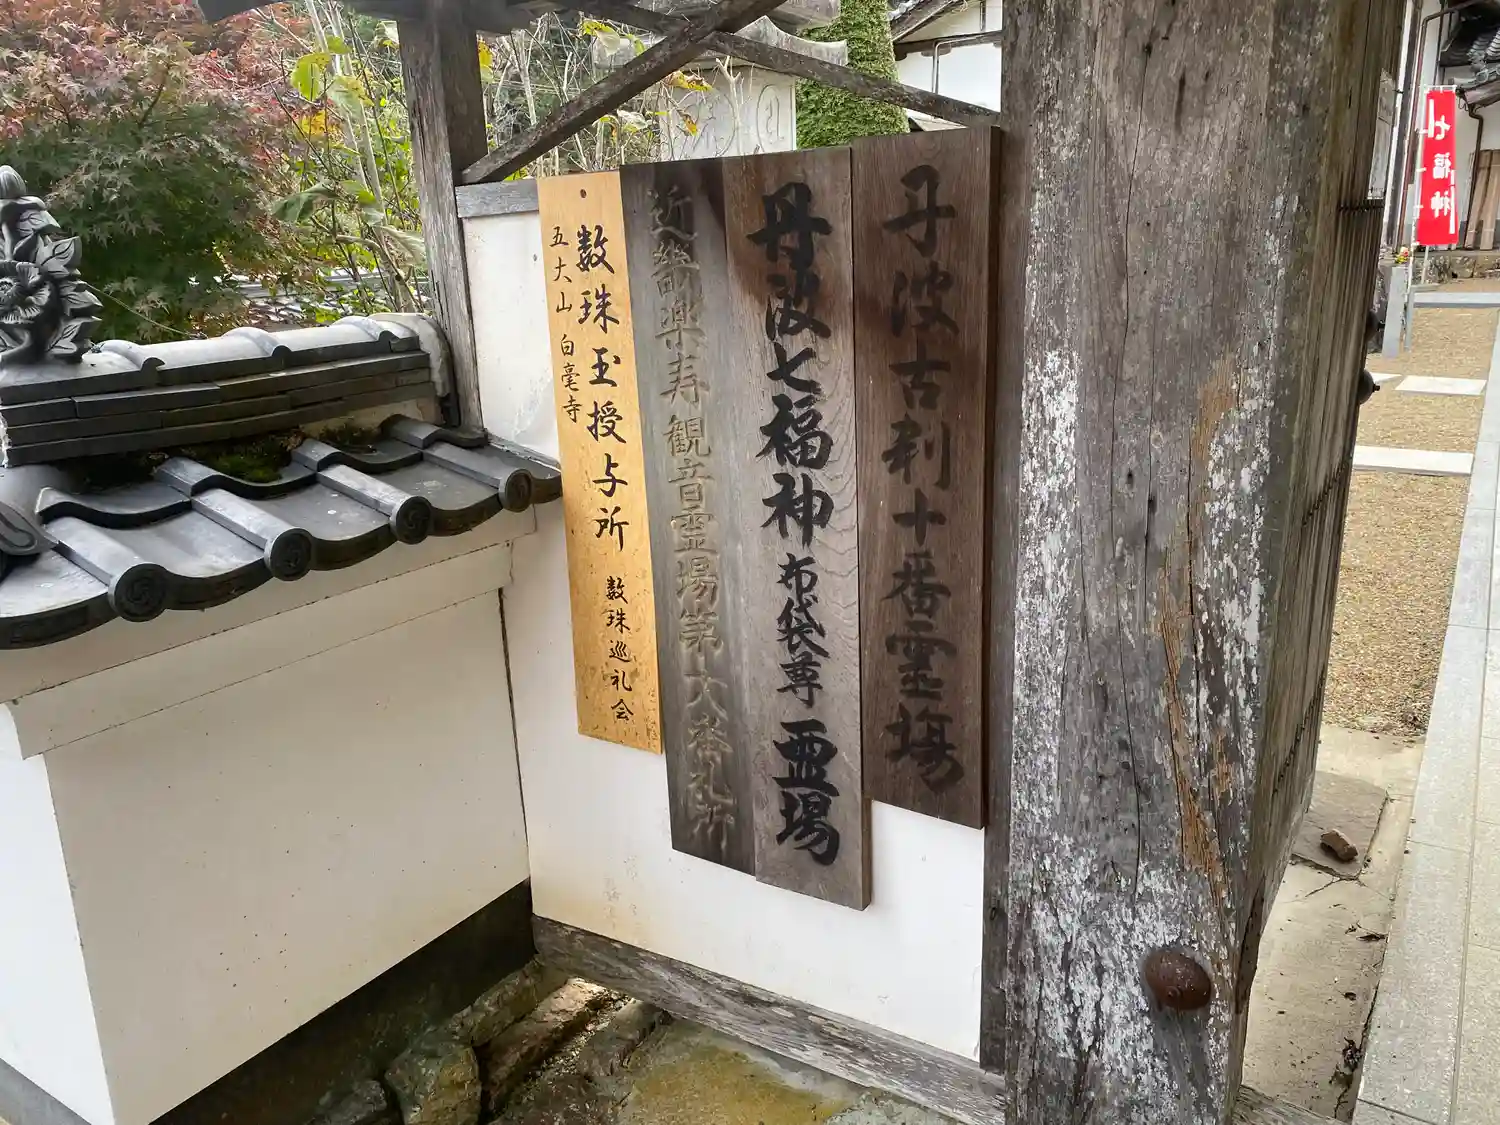 丹波古刹十番霊場
丹波七福神 布袋尊 霊場
近畿楽寿観音霊場第六番札所
数珠玉授与所 数珠巡礼会
五大山 白毫寺
七福神